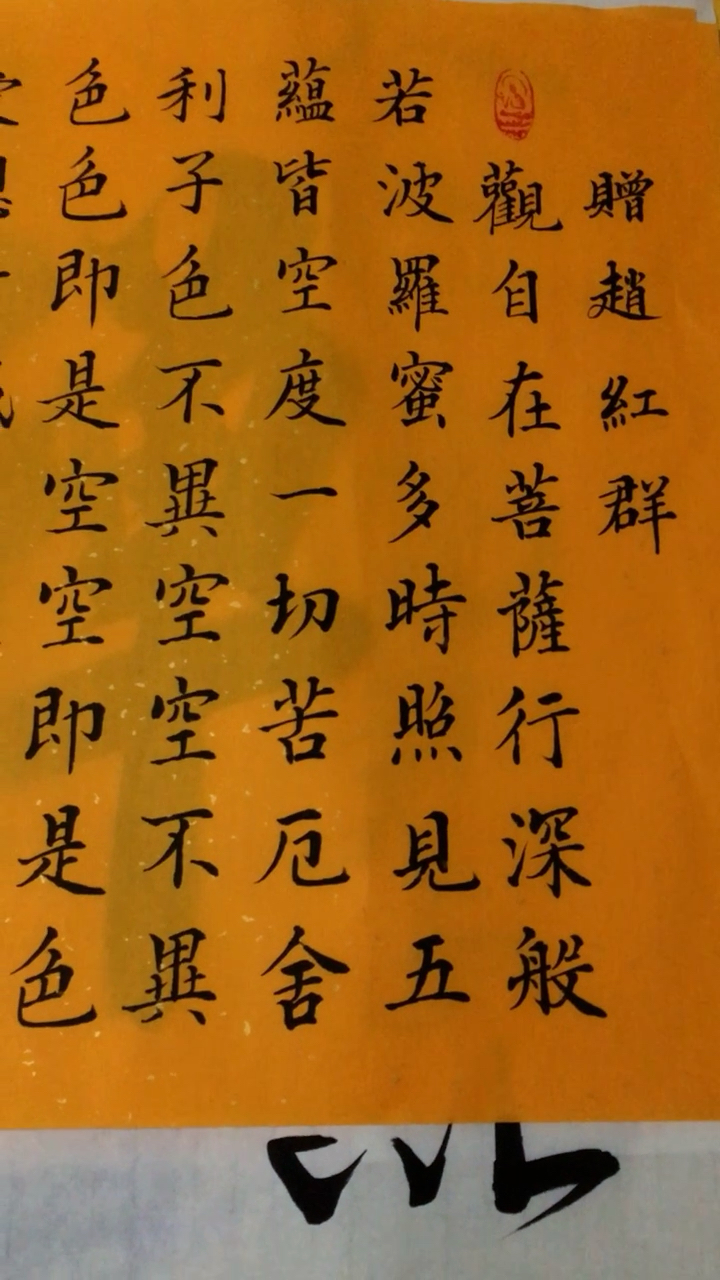 贈趙紅群
觀自在菩薩行深般
若波羅蜜多時照見五
蘊皆空度一切苦厄舍
利子色不異空空不異
色色即是空空即是色